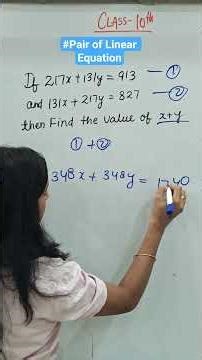 CLASS-10th
#Pair of Linear
Equation
If 217x + 131y = 913 — ①
and 131x + 217y = 827 — ②
then Find the value of x+y
① + ②
348x + 348y = 1740